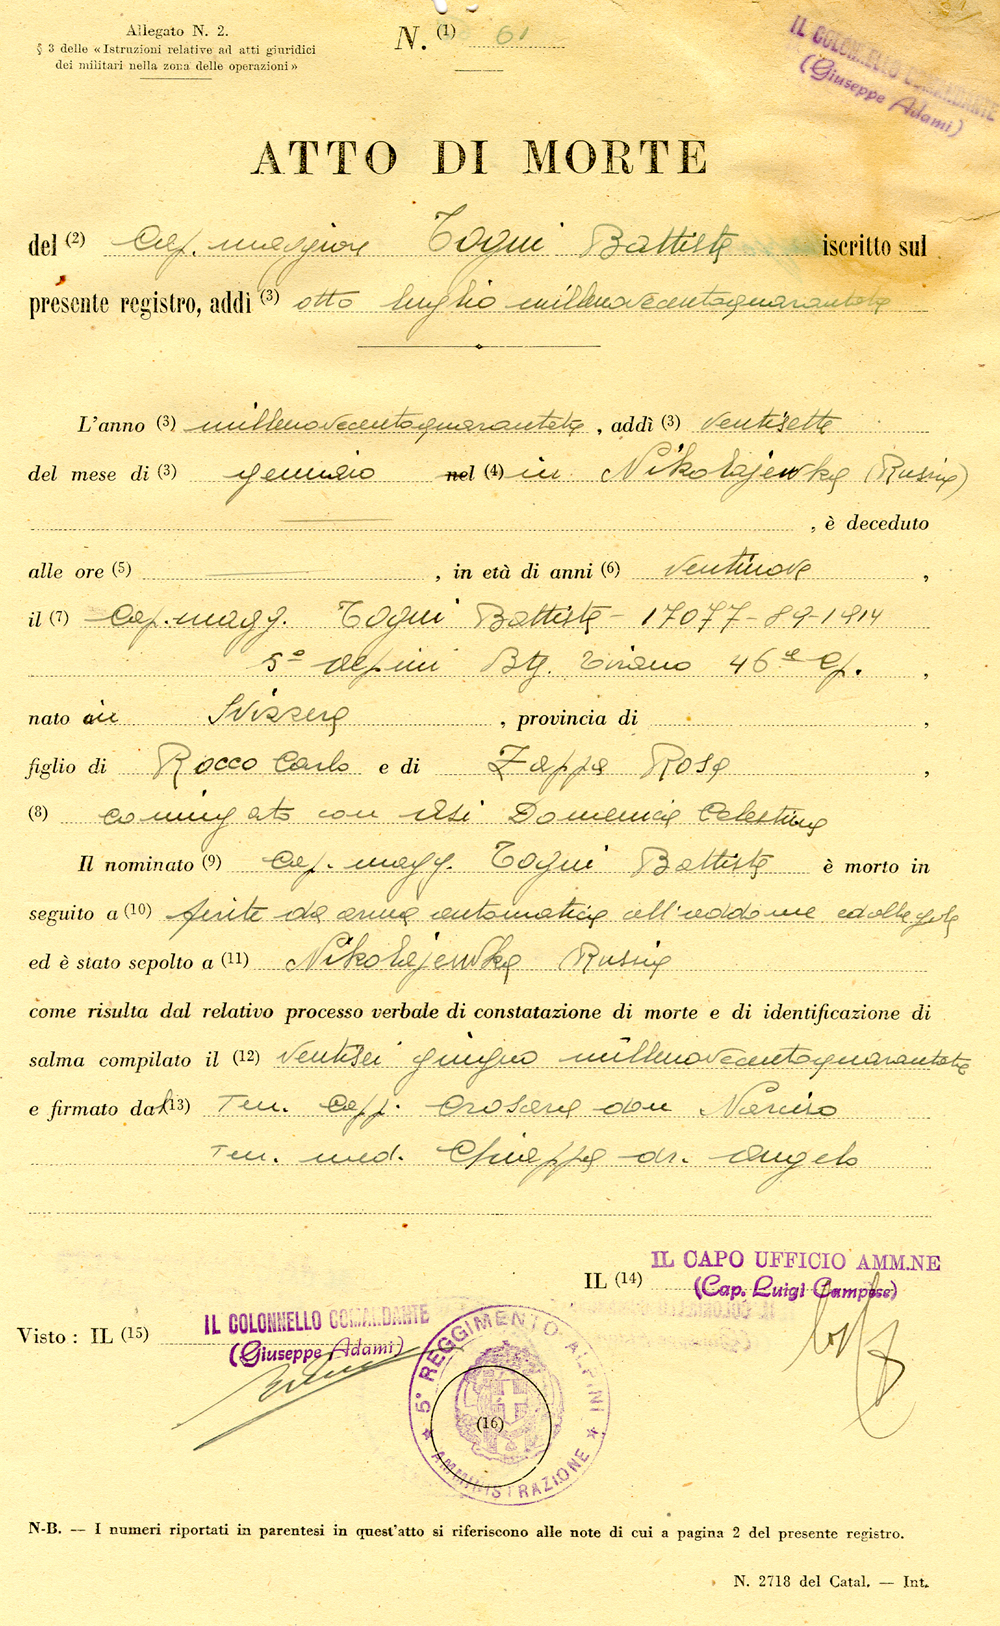 Allegato N. 2.
§ 3 delle « Istruzioni relative ad atti giuridici
dei militari nella zona delle operazioni »
N. (1) 61
IL COLONNELLO COMANDANTE
(Giuseppe Adami)
ATTO DI MORTE
del (2) Cap. maggiore Togni Battista iscritto sul
presente registro, addì (3) otto luglio millenovecentoquarantatre
L'anno (3) millenovecentoquarantatre, addì (3) ventisette
del mese di (3) gennaio nel (4) in Nikolajewka (Russia)
, è deceduto
alle ore (5) , in età di anni (6) ventinove ,
il (7) Cap. magg. Togni Battista - 17077-89-1914
5° alpini Btg. Tirano 46ª Cp. ,
nato in Svizzera , provincia di ,
figlio di Rocco Carlo e di Zappa Rosa ,
(8) coniugato con Isi Domenica Celestina
Il nominato (9) Cap. magg. Togni Battista è morto in
seguito a (10) ferite da arma automatica all'addome ed alla gola
ed è stato sepolto a (11) Nikolajewka Russia
come risulta dal relativo processo verbale di constatazione di morte e di identificazione di
salma compilato il (12) ventisei giugno millenovecentoquarantatre
e firmato dal (13) Ten. Capp. Crosara don Narciso
Ten. med. Chiappa dr. Angelo
IL (14) IL CAPO UFFICIO AMM.NE
(Cap. Luigi Campese)
Visto : IL (15) IL COLONNELLO COMANDANTE
(Giuseppe Adami)
5° REGGIMENTO ALPINI
(16)
* AMMINISTRAZIONE *
N-B. — I numeri riportati in parentesi in quest'atto si riferiscono alle note di cui a pagina 2 del presente registro.
N. 2718 del Catal. — Int.